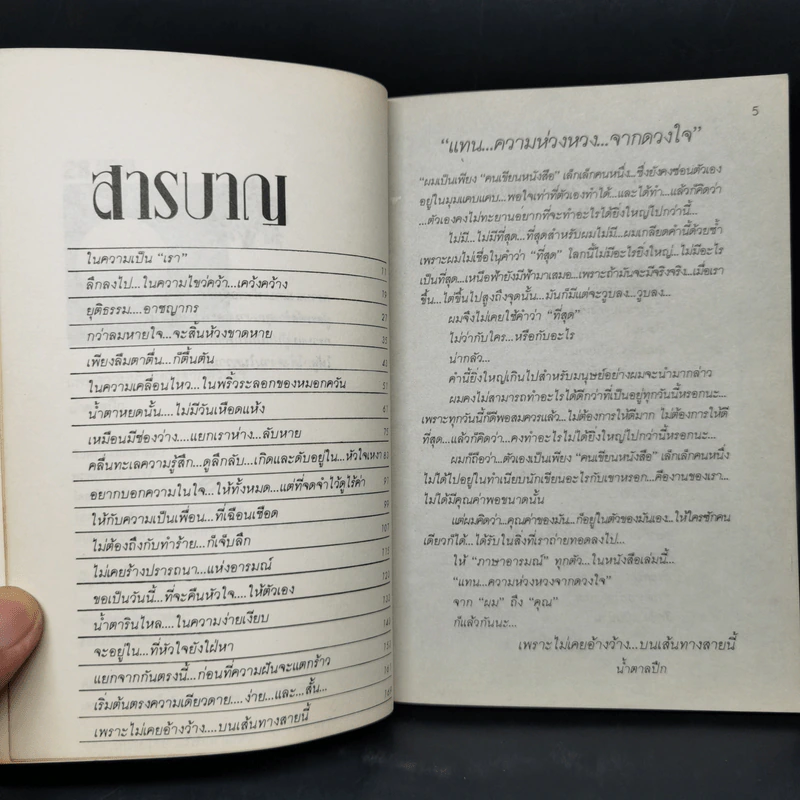 สารบาญ
ในความเป็น “เรา” 11
ลึกลงไป...ในความไขว่คว้า...เคว้งคว้าง 19
ยุติธรรม....อาชญากร 27
กว่าลมหายใจ...จะสิ้นห้วงขาดหาย 35
เพียงลืมตาตื่น...ก็ตื้นตัน 43
ในความเคลื่อนไหว...ในพริ้วระลอกของหมอกควัน 51
น้ำตาหยดนั้น....ไม่มีวันเหือดแห้ง 67
เหมือนมีช่องว่าง....แยกเราห่าง...ลับหาย 75
คลื่นทะเลความรู้สึก...ดูลึกลับ...เกิดและดับอยู่ใน...หัวใจเหงา 83
อยากบอกความในใจ...ให้ทั้งหมด...แต่ที่จดจำไว้ดูไร้ค่า 91
ให้กับความเป็นเพื่อน...ที่เฉือนเชือด 99
ไม่ต้องถึงกับทำร้าย...ก็เจ็บลึก 107
ไม่เคยร้างปรารถนา...แห่งอารมณ์ 115
ขอเป็นวันนี้...ที่จะคืนหัวใจ....ให้ตัวเอง
น้ำตารินไหล....ในความง่ายเงียบ
จะอยู่ใน...ที่หัวใจยังใฝ่หา
แยกจากกันตรงนี้...ก่อนที่ความฝันจะแตกร้าว
เริ่มต้นตรงความเดียวดาย....ง่าย...และ...สั้น...
เพราะไม่เคยอ้างว้าง....บนเส้นทางสายนี้
5
“แทน...ความห่วงหวง...จากดวงใจ”
“ผมเป็นเพียง “คนเขียนหนังสือ” เล็กเล็กคนหนึ่ง...ซึ่งยังคงซ่อนตัวเอง
อยู่ในมุมแคบแคบ...พอใจเท่าที่ตัวเองทำได้...และได้ทำ...แล้วก็คิดว่า
...ตัวเองคงไม่ทะยานอยากที่จะทำอะไรได้ยิ่งใหญ่ไปกว่านี้...
ไม่มี...ไม่มีที่สุด...ที่สุดสำหรับผมไม่มี...ผมเกลียดคำนี้ด้วยซ้ำ
เพราะผมไม่เชื่อในคำว่า “ที่สุด” โลกนี้ไม่มีอะไรยิ่งใหญ่...ไม่มีอะไร
เป็นที่สุด...เหนือฟ้ายังมีฟ้ามาเสมอ...เพราะถ้ามันจะมีจริงจริง...เมื่อเรา
ขึ้น...ไต่ขึ้นไปสูงถึงจุดนั้น...มันก็มีแต่จะวูบลง...วูบลง...
ผมจึงไม่เคยใช้คำว่า “ที่สุด”
ไม่ว่ากับใคร...หรือกับอะไร
น่ากลัว...
คำนี้ยิ่งใหญ่เกินไปสำหรับมนุษย์อย่างผมจะนำมากล่าว
ผมคงไม่สามารถทำอะไรได้ดีกว่าที่เป็นอยู่ทุกวันนี้หรอกนะ...
เพราะทุกวันนี้ก็ดีพอสมควรแล้ว...ไม่ต้องการให้ดีมาก ไม่ต้องการให้ดี
ที่สุด...แล้วก็คิดว่า...คงทำอะไรไม่ได้ยิ่งใหญ่ไปกว่านี้หรอกนะ...
ผมก็ถือว่า...ตัวเองเป็นเพียง “คนเขียนหนังสือ” เล็กเล็กคนหนึ่ง
ไม่ได้ไปอยู่ในทำเนียบนักเขียนอะไรกับเขาหรอก...คืองานของเรา...
ไม่ได้มีคุณค่าพอขนาดนั้น
แต่ผมคิดว่า...คุณค่าของมัน...ก็อยู่ในตัวของมันเอง...ให้ใครซักคน
เดียวก็ได้...ได้รับในสิ่งที่เราถ่ายทอดลงไป...
ให้ “ภาษาอารมณ์” ทุกตัว...ในหนังสือเล่มนี้...
“แทน...ความห่วงหวงจากดวงใจ”
จาก “ผม” ถึง “คุณ”
ก็แล้วกันนะ...
เพราะไม่เคยอ้างว้าง...บนเส้นทางสายนี้
น้ำตาลปึก